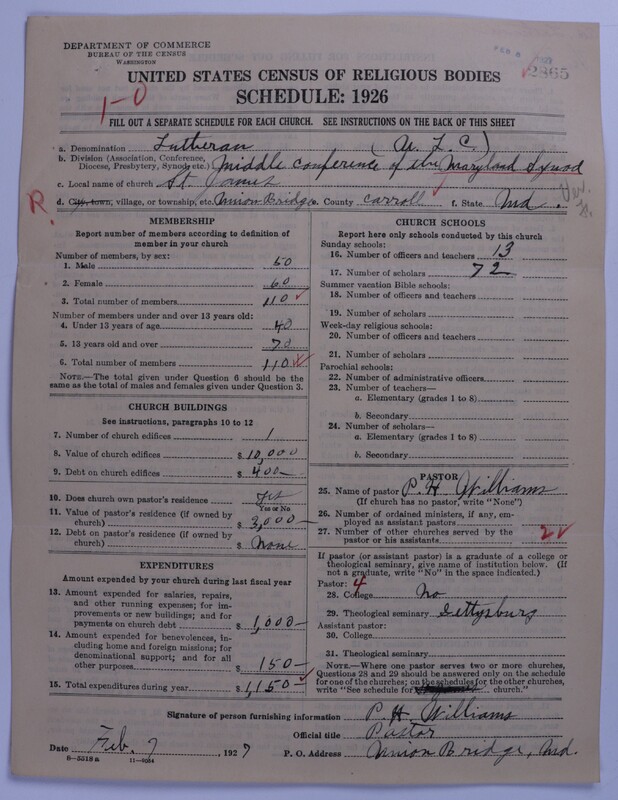 DEPARTMENT OF COMMERCE
BUREAU OF THE CENSUS
WASHINGTON
FEB 8
2865
UNITED STATES CENSUS OF RELIGIOUS BODIES
SCHEDULE: 1926
1-0
FILL OUT A SEPARATE SCHEDULE FOR EACH CHURCH. SEE INSTRUCTIONS ON THE BACK OF THIS SHEET
a. Denomination Lutheran (U. L. C.)
b. Division (Association, Conference, Diocese, Presbytery, Synod, etc.) Middle Conference of the Maryland Synod
c. Local name of church St. James
R.
d. City, town, village, or township, etc. Union Bridge e. County Carroll f. State Md.
MEMBERSHIP
Report number of members according to definition of
member in your church
Number of members, by sex:
1. Male 50
2. Female 60
3. Total number of members 110
Number of members under and over 13 years old:
4. Under 13 years of age 40
5. 13 years old and over 70
6. Total number of members 110
NOTE.—The total given under Question 6 should be the
same as the total of males and females given under Question 3.
CHURCH BUILDINGS
See instructions, paragraphs 10 to 12
7. Number of church edifices 1
8. Value of church edifices $ 10,000
9. Debt on church edifices $ 400—
10. Does church own pastor's residence Yes
Yes or No
11. Value of pastor's residence (if owned by
church) $ 3,000—
12. Debt on pastor's residence (if owned by
church) $ None
EXPENDITURES
Amount expended by your church during last fiscal year
13. Amount expended for salaries, repairs,
and other running expenses; for im-
provements or new buildings; and for
payments on church debt $ 1,000—
14. Amount expended for benevolences, in-
cluding home and foreign missions; for
denominational support; and for all
other purposes $ 150—
15. Total expenditures during year $ 1,150—
CHURCH SCHOOLS
Report here only schools conducted by this church
Sunday schools:
16. Number of officers and teachers 13
17. Number of scholars 72
Summer vacation Bible schools:
18. Number of officers and teachers
19. Number of scholars
Week-day religious schools:
20. Number of officers and teachers
21. Number of scholars
Parochial schools:
22. Number of administrative officers
23. Number of teachers—
a. Elementary (grades 1 to 8)
b. Secondary
24. Number of scholars—
a. Elementary (grades 1 to 8)
b. Secondary
PASTOR
25. Name of pastor P. H. Williams
(If church has no pastor, write "None")
26. Number of ordained ministers, if any, em-
ployed as assistant pastors
27. Number of other churches served by the
pastor or his assistants 2
If pastor (or assistant pastor) is a graduate of a college or
theological seminary, give name of institution below. (If
not a graduate, write "No" in the space indicated.)
Pastor: 4
28. College No
29. Theological seminary Gettysburg
Assistant pastor:
30. College
31. Theological seminary
NOTE.—Where one pastor serves two or more churches,
Questions 28 and 29 should be answered only on the schedule
for one of the churches; on the schedules for the other churches,
write "See schedule for church."
Signature of person furnishing information P H Williams
Official title Pastor
Date Feb. 7, 1927 P. O. Address Union Bridge, Md.
8—5318 a 11—9084